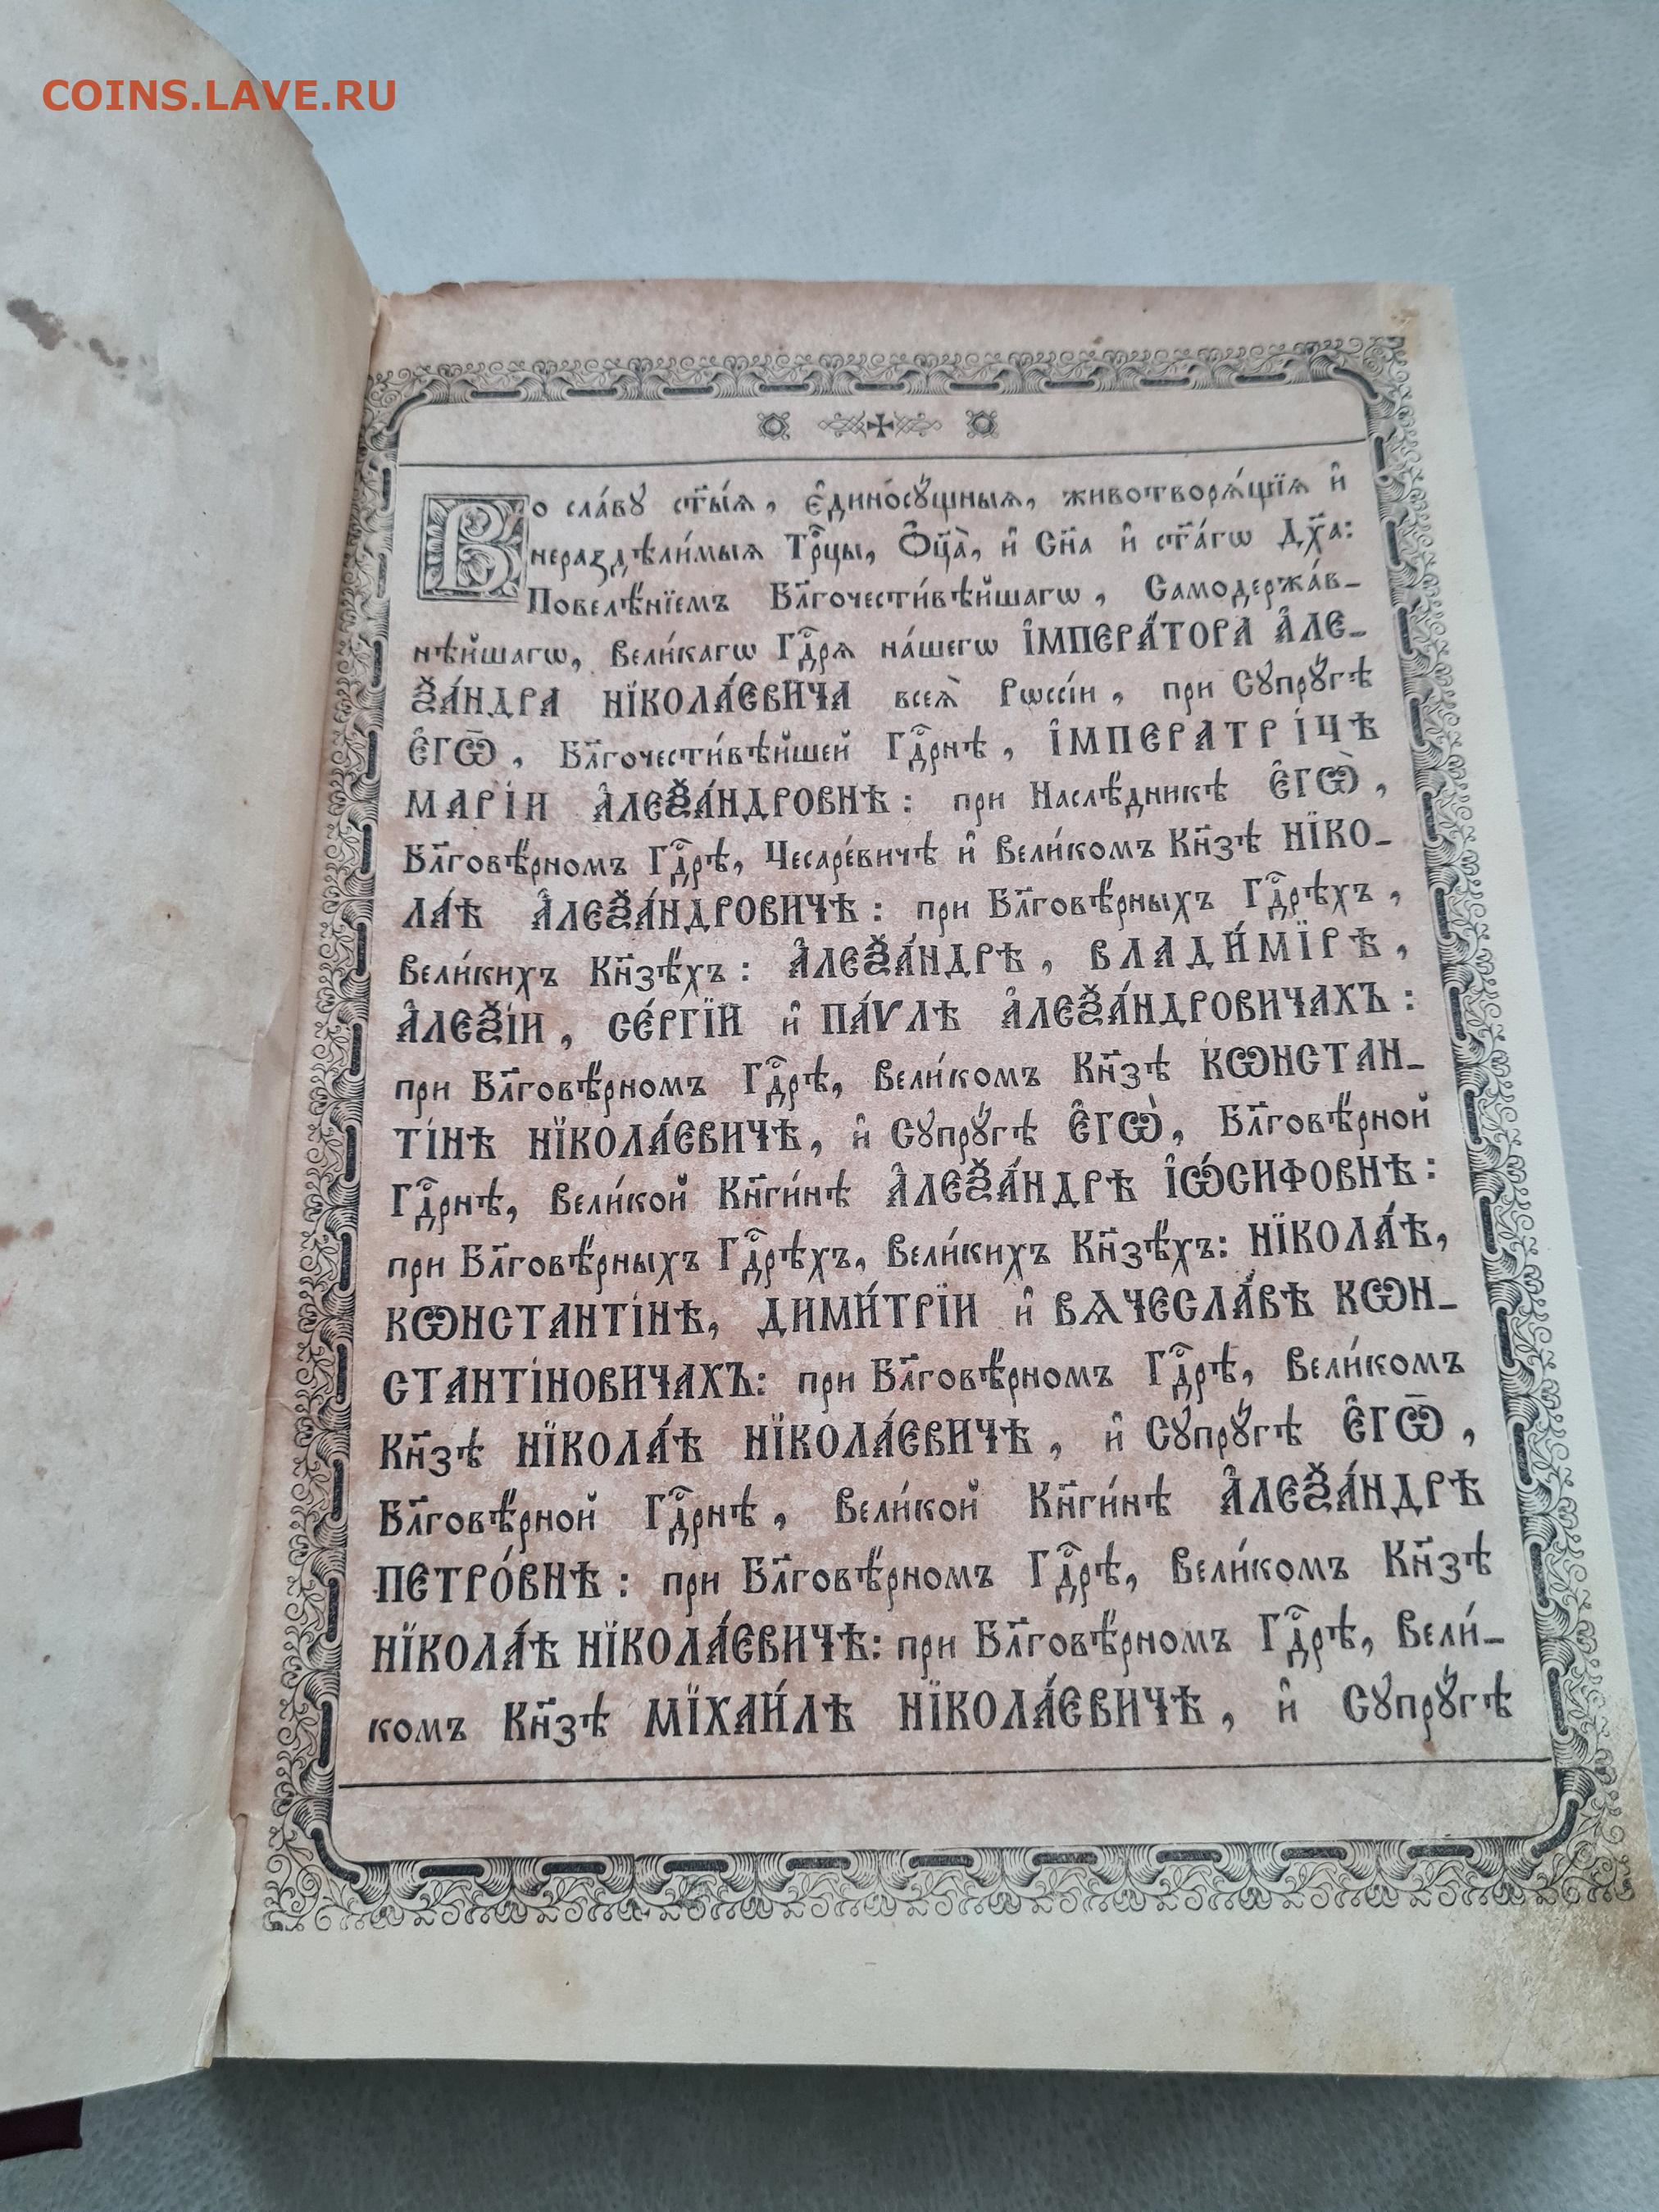 COINS.LAVE.RU
Во сла́вꙋ ст҃ы́ѧ, є҆дино́сꙋ́щныѧ, животворѧ́щїѧ и҆
нераздѣли́мыѧ Трⷪ҇цы, Ѻ҆ц҃а̀, и҆ Сн҃а и҆ ст҃а́гѡ Дх҃а:
Повелѣ́нїемъ Бл҃гочести́вѣйшагѡ, Самодержа́в-
нѣйшагѡ, вели́кагѡ Гдⷭ҇рѧ на́шегѡ І҆МПЕРА́ТОРА А҆ЛЕ-
Ѯ҆А́НДРА НЇКОЛА́ЕВИЧА всеѧ̀ Рѡссі́и, при Сꙋпрꙋ́гѣ
Є҆ГѠ̀, Бл҃гочести́вѣйшей Гдⷭ҇рнѣ, І҆МПЕРАТРІ́ЦѢ
МАРІ́И А҆ЛЕѮА́НДРОВНѢ: при Наслѣ́дникѣ Є҆ГѠ̀,
Бл҃говѣ́рномъ Гдⷭ҇рѣ, Цесаре́вичѣ и҆ Вели́комъ Кн҃зѣ НЇКО-
ЛА́Ѣ А҆ЛЕѮА́НДРОВИЧѢ: при Бл҃говѣ́рныхъ Гдⷭ҇рѣхъ,
Вели́кихъ Кн҃зѣ́хъ: А҆ЛЕѮА́НДРѢ, ВЛАДИ́МЇРѢ,
А҆ЛЕѮІ́И, СЕ́РГЇИ и҆ ПА́ѴЛѢ А҆ЛЕѮА́НДРОВИЧАХЪ:
при Бл҃говѣ́рномъ Гдⷭ҇рѣ, Вели́комъ Кн҃зѣ КѠНСТАН-
ТІ́НѢ НЇКОЛА́ЕВИЧѢ, и҆ Сꙋпрꙋ́гѣ Є҆ГѠ̀, Бл҃говѣ́рной
Гдⷭ҇рнѣ, Вели́кой Кн҃ги́нѣ А҆ЛЕѮА́НДРѢ І҆Ѡ́СИФОВНѢ:
при Бл҃говѣ́рныхъ Гдⷭ҇рѣхъ, Вели́кихъ Кн҃зѣ́хъ: НЇКОЛА́Ѣ,
КѠНСТАНТІ́НѢ, ДИМИ́ТРЇИ и҆ ВѦЧЕСЛА́ВѢ КѠН-
СТАНТІ́НОВИЧАХЪ: при Бл҃говѣ́рномъ Гдⷭ҇рѣ, Вели́комъ
Кн҃зѣ НЇКОЛА́Ѣ НЇКОЛА́ЕВИЧѢ, и҆ Сꙋпрꙋ́гѣ Є҆ГѠ̀,
Бл҃говѣ́рной Гдⷭ҇рнѣ, Вели́кой Кн҃ги́нѣ А҆ЛЕѮА́НДРѢ
ПЕТРО́ВНѢ: при Бл҃говѣ́рномъ Гдⷭ҇рѣ, Вели́комъ Кн҃зѣ
НЇКОЛА́Ѣ НЇКОЛА́ЕВИЧѢ: при Бл҃говѣ́рномъ Гдⷭ҇рѣ, Вели́-
комъ Кн҃зѣ МЇХАИ́ЛѢ НЇКОЛА́ЕВИЧѢ, и҆ Сꙋпрꙋ́гѣ